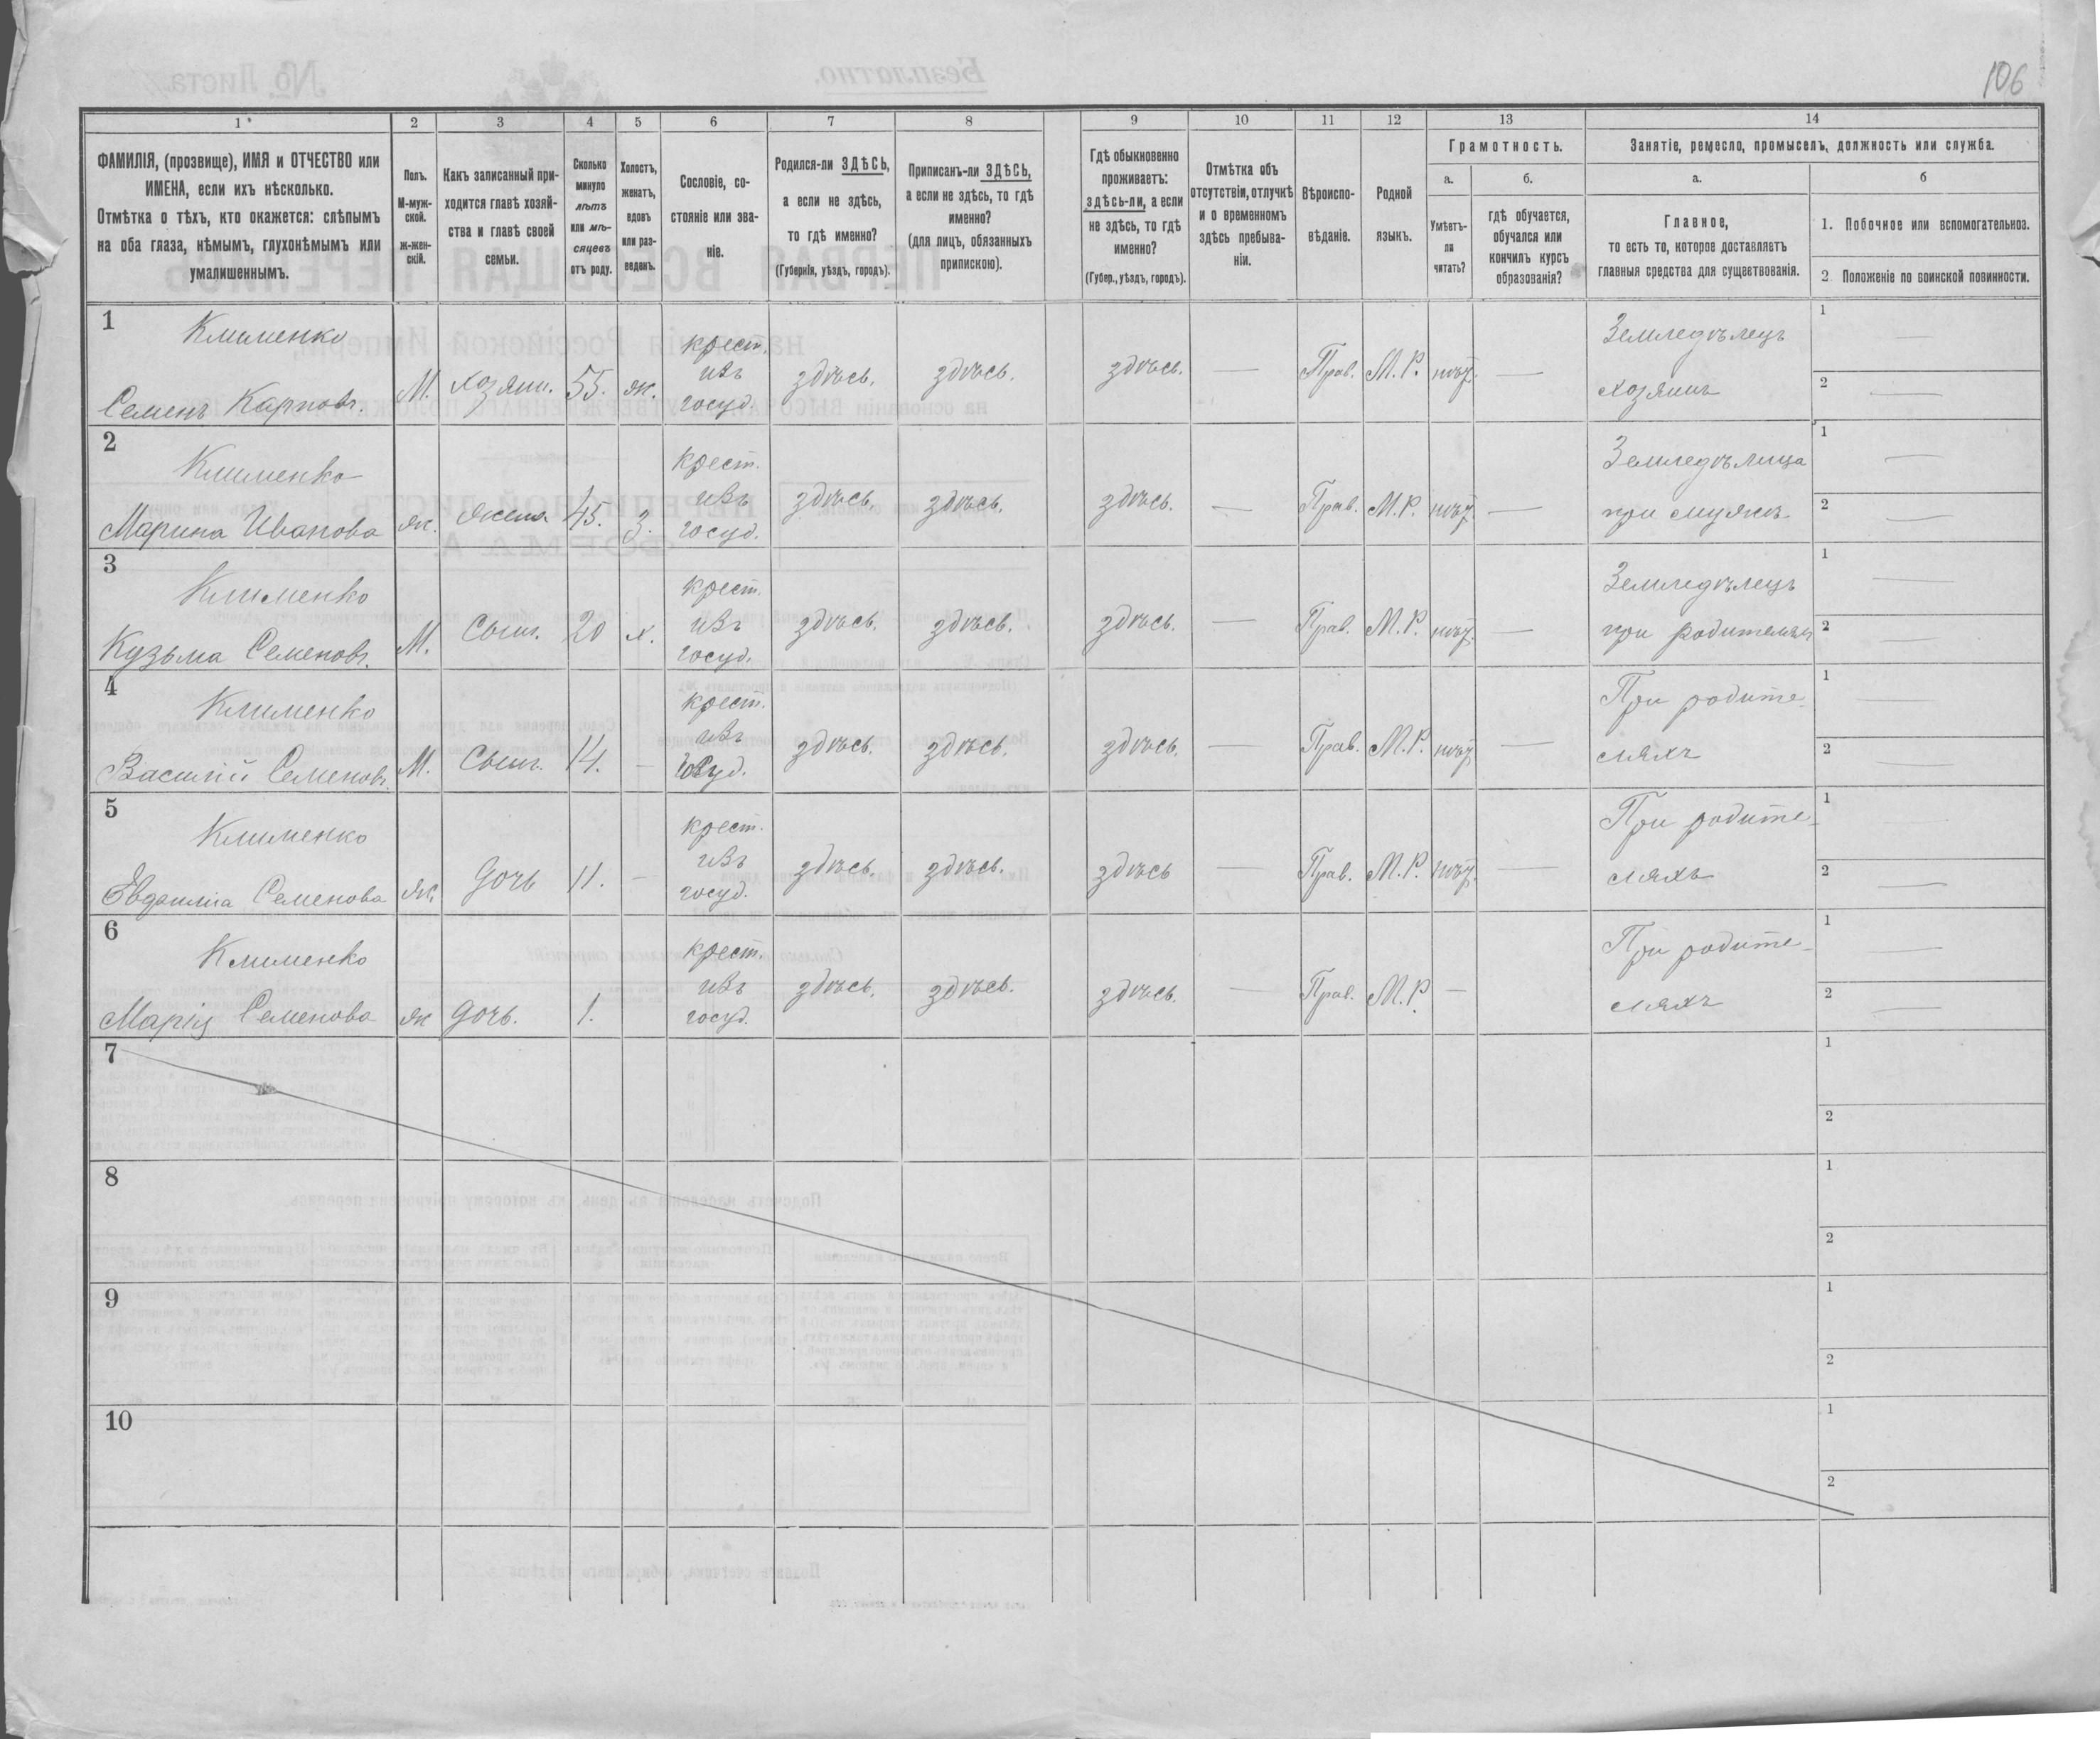 106
1 2 3 4 5 6 7 8 9 10 11 12 13 14
ФАМИЛІЯ, (прозвище), ИМЯ и ОТЧЕСТВО или
ИМЕНА, если ихъ нѣсколько.
Отмѣтка о тѣхъ, кто окажется: слѣпымъ
на оба глаза, нѣмымъ, глухонѣмымъ или
умалишеннымъ.
Полъ.
М-муж-
ской.
Ж-жен-
скій.
Какъ записанный при-
ходится главѣ хозяй-
ства и главѣ своей
семьи.
Сколько
минуло
лѣтъ
или мѣ-
сяцевъ
отъ роду.
Холостъ,
женатъ,
вдовъ
или раз-
веденъ.
Сословіе, со-
стояніе или зва-
ніе.
Родился-ли ЗДѢСЬ,
а если не здѣсь,
то гдѣ именно?
(Губернія, уѣздъ, городъ).
Приписанъ-ли ЗДѢСЬ,
а если не здѣсь, то гдѣ
именно?
(для лицъ, обязанныхъ
припискою).
Гдѣ обыкновенно
проживаетъ:
здѣсь-ли, а если
не здѣсь, то гдѣ
именно?
(Губер., уѣздъ, городъ).
Отмѣтка объ
отсутствіи, отлучкѣ
и о временномъ
здѣсь пребыва-
ніи.
Вѣроиспо-
вѣданіе.
Родной
языкъ.
Грамотность.
а.
Умѣетъ-
ли
читать?
б.
гдѣ обучается,
обучался или
кончилъ курсъ
образованія?
Занятіе, ремесло, промыселъ, должность или служба.
а.
Главное,
то есть то, которое доставляетъ
главныя средства для существованія.
б
1. Побочное или вспомогательное.
2. Положеніе по воинской повинности.
1
Клименко
Семенъ Карповъ.
М. хозяин. 55. ж.
крест.
изъ
госуд.
здѣсь. здѣсь. здѣсь. — Прав. М.Р. нѣт. —
Земледѣлецъ
хозяинъ
1 —
2 —
2
Клименко
Марина Иванова
ж. жена 45. З.
крест.
изъ
госуд.
здѣсь. здѣсь. здѣсь. — Прав. М.Р. нѣт. —
Земледѣлица
при мужѣ
1 —
2 —
3
Клименко
Кузьма Семеновъ.
М. Сынъ. 20 х.
крест.
изъ
госуд.
здѣсь. здѣсь. здѣсь. — Прав. М.Р. нѣт. —
Земледѣлецъ
при родителяхъ
1 —
2 —
4
Клименко
Василій Семеновъ.
М. Сынъ. 14. —
крест.
изъ
госуд.
здѣсь. здѣсь. здѣсь. — Прав. М.Р. нѣт. —
При родите-
ляхъ
1 —
2 —
5
Клименко
Семенова
ж. дочь 11. —
крест.
изъ
госуд.
здѣсь. здѣсь. здѣсь — Прав. М.Р. нѣт. —
При родите-
ляхъ
1 —
2 —
6
Клименко
Марія Семенова
ж дочь. 1.
крест.
изъ
госуд.
здѣсь. здѣсь. здѣсь. — Прав. М.Р —
При родите-
ляхъ
1 —
2 —
7
1
2
8
1
2
9
1
2
10
1
2